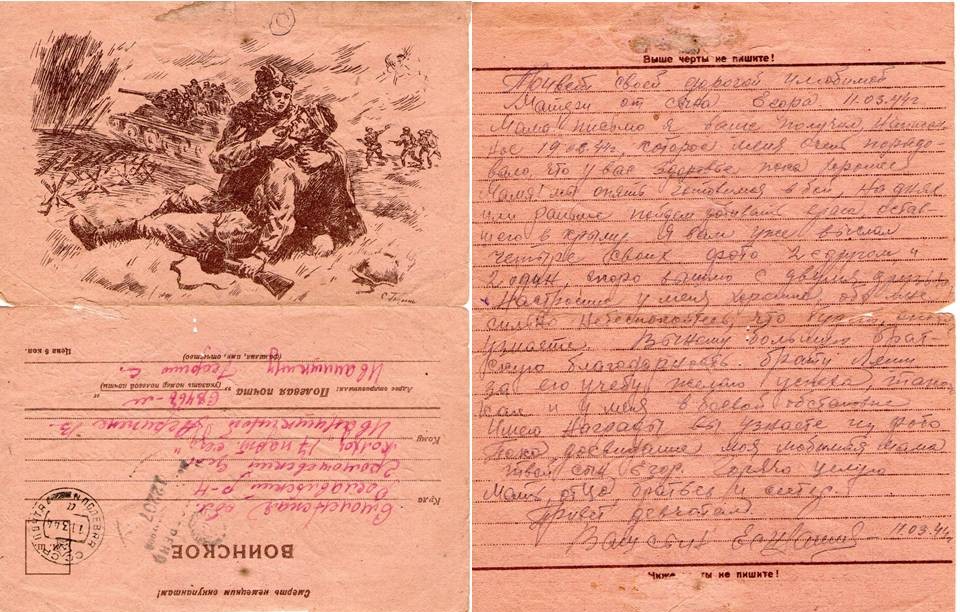 Смерть немецким оккупантам!
ВОИНСКОЕ
Куда Смоленская обл.
р-н
колхоз "17 парт съезд"
Кому
Адрес отправителя: Полевая почта
(указать номер полевой почты)
Георгию С.
(фамилия, имя, отчество)
Цена 5 коп.
Выше черты не пишите!
Привет своей дорогой и любимой
Матери от сына Егора 11.03.44г
Мама письмо я ваше получил, написан
ное 19 44г, которое меня очень порадо-
вало, что у вас здоровье пока хорошее
Мама! мы опять готовимся в бой, на днях
или раньше пойдем добивать врага остав
шего в крыму. Я вам уже выслал
четыре своих фото 2 с другом и
2 один, скоро вышлю с двумя друзьями
Настроение у меня хорошее, обо мне
сильно не беспокойтесь, что будет
узнаете. Выношу большую брат-
скую благодарность брату Лени
за его учебу желаю успеха,
и у меня в боевой обстановке
Имею награды вы узнаете из фото
Пока досвидание моя любимая мама
твой сын Егор. Горячо целую
Мать, отца, братьев и сестру.
Привет девчатам.
Ваш сын 11.03.44г
Ниже черты не пишите!